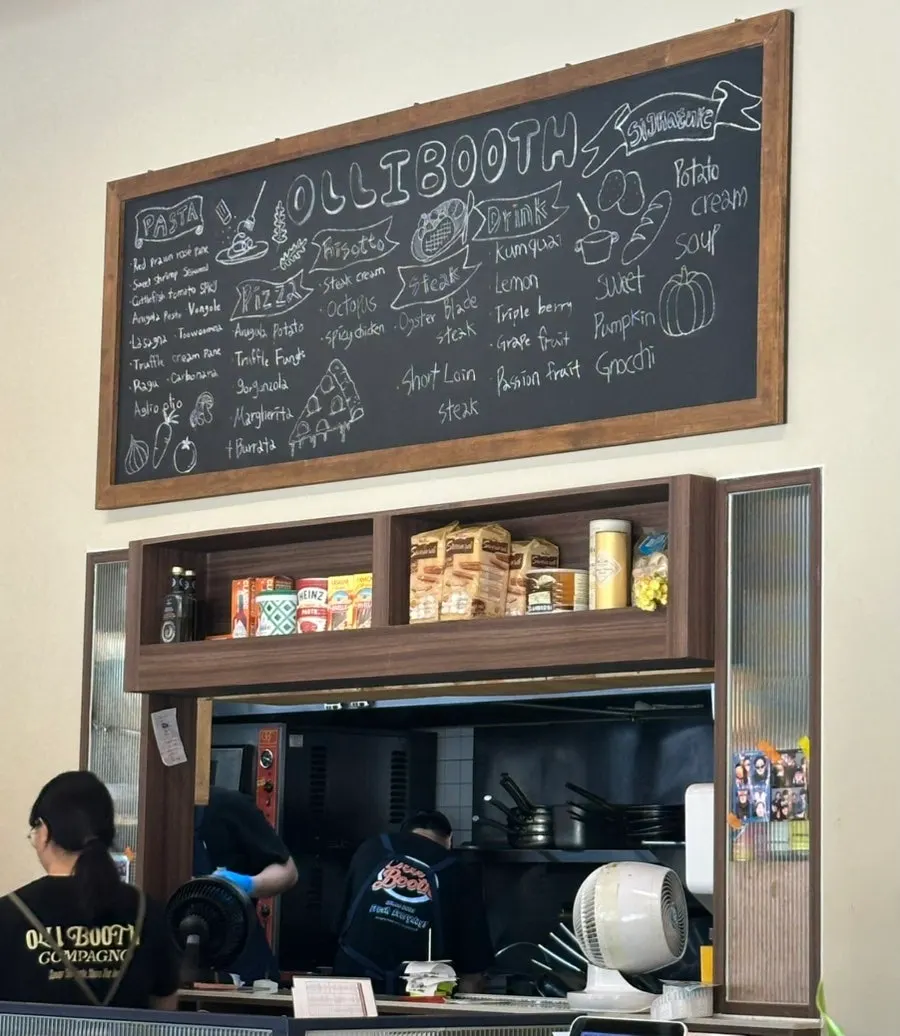 OLLIBOOTH
PASTA
Red prawn rosé pane
Sweet shrimp Seaweed
Cuttlefish tomato SPICY
Arugula Pesto Vongole
Lasagna · Toowoomba
Truffle cream Pane
Ragu · Carbonara
Aglio olio
Pizza
Arugula Potato
Truffle Fungi
gorgonzola
Margherita
+ Burrata
Risotto
Steak cream
Octopus
Spicy chicken
Steak
Oyster Blade
steak
Short Loin
steak
Drink
Kumquat
Lemon
Triple berry
Grape fruit
Passion fruit
Signature
Potato
cream
soup
sweet
Pumpkin
Gnocchi
HEINZ
OLLI BOOTH
COMPAGNO
Booth